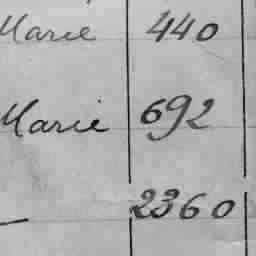 Marie 440
Marie 692
2360